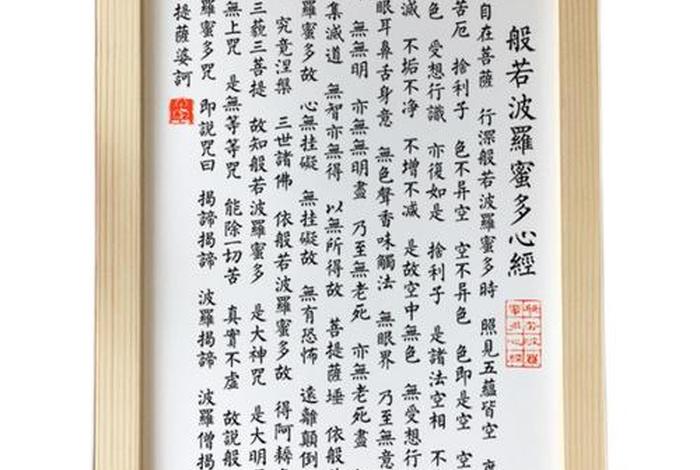 般若波羅蜜多心經
自在菩薩 行深般若波羅蜜多時 照見五蘊皆空
苦厄 捨利子 色不异空 空不异色 色即是空 空
色 受想行識 亦復如是 捨利子 是諸法空相 不
滅 不垢不净 不增不减 是故空中無色 無受想行
眼耳鼻舌身意 無色聲香味觸法 無眼界 乃至無意
無無明 亦無無明盡 乃至無老死 亦無老死盡
集滅道 無智亦無得 以無所得故 菩提薩埵 依般
羅蜜多故 心無挂礙 無挂礙故 無有恐怖 遠離顛倒
究竟涅槃 三世諸佛 依般若波羅蜜多故 得阿耨
三藐三菩提 故知般若波羅蜜多 是大神咒 是大明
無上咒 是無等等咒 能除一切苦 真實不虛 故說般
羅蜜多咒 即說咒曰 揭諦揭諦 波羅揭諦 波羅僧揭
提薩婆訶